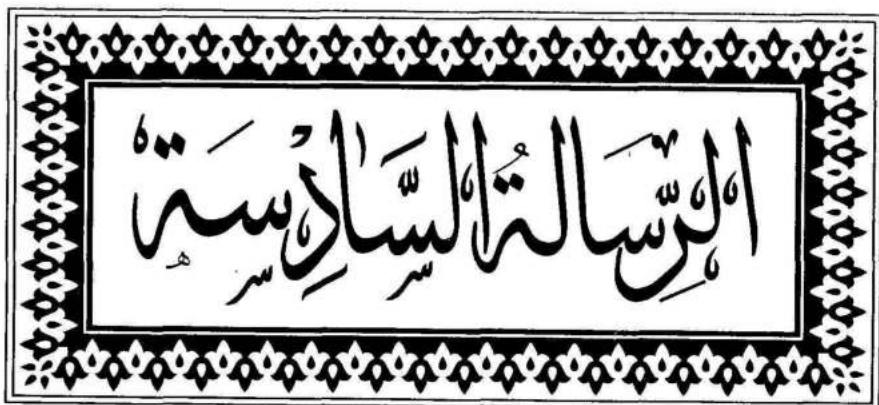 الرِّسَالَةُ السَّادِسَة